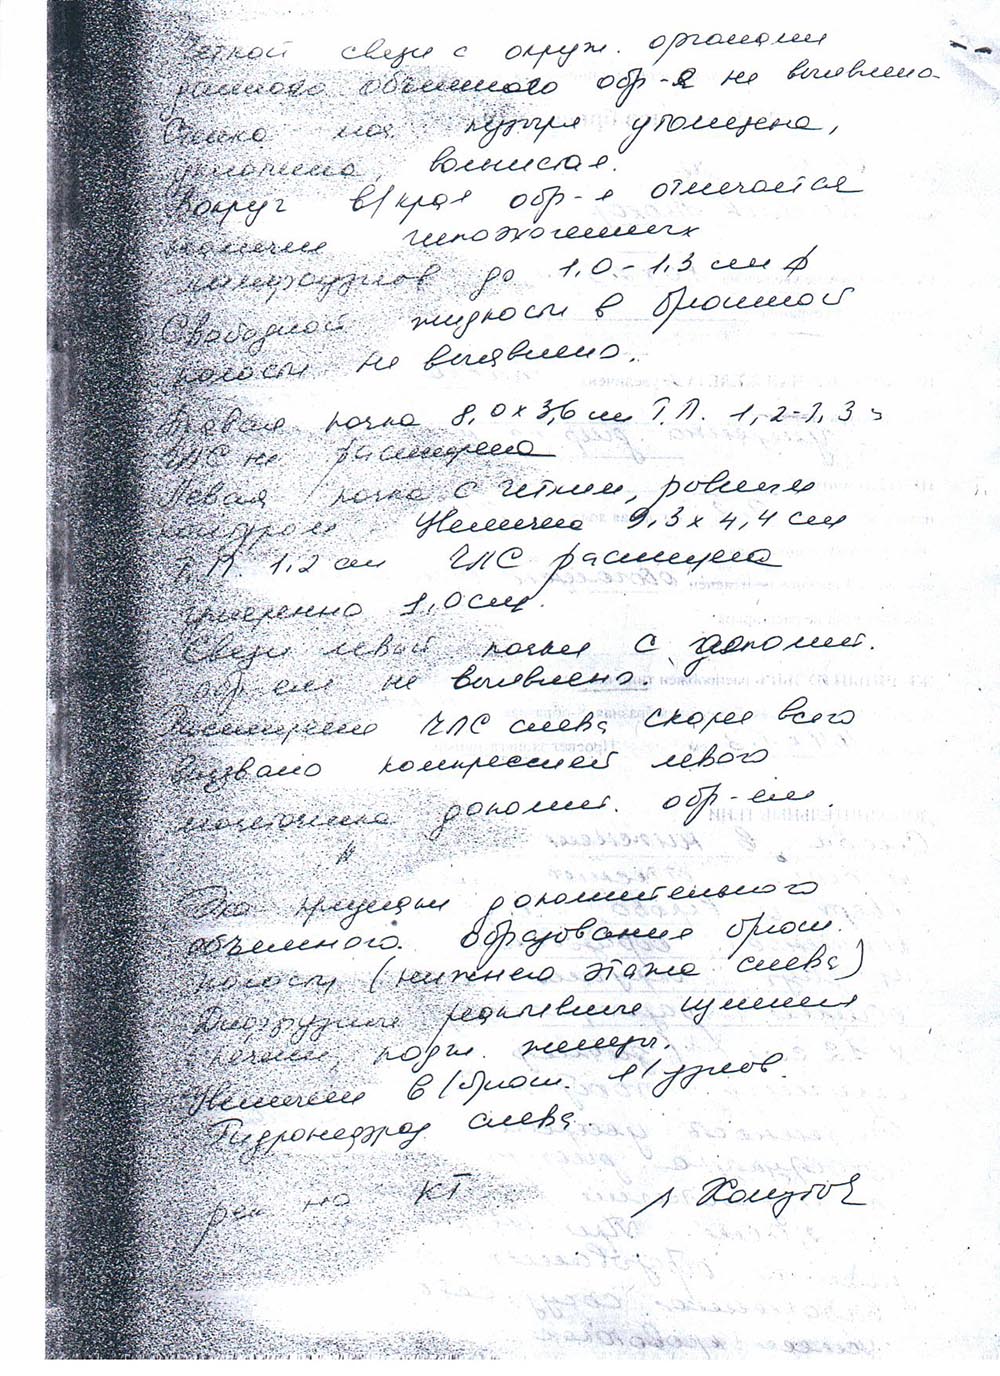 Четкой связи с окруж. органами
данного объемного обр-я не выявлено
Стенка моч. пузыря утолщена,
уплотнена, волнистая.
Вокруг в/края обр-я отмечается
наличие гипоэхогенных
лимфоузлов до 1,0-1,3 см ф
Свободной жидкости в брюшной
полости не выявлено.
Правая почка 8,0х3,6 см Т.П. 1,2-1,3
ЧЛС не расширена
Левая почка с четким, ровным
контуром 9,3х4,4 см
Т.П. 1,2 см ЧЛС расширена
примерно 1,0см.
Связи левой почки с дополнит.
обр-ем не выявлено.
Расширение ЧЛС слева скорее всего
вызвано компрессией левого
мочеточника дополнит. обр-ем.
Эхо признаки дополнительного
объемного образования брюш.
полости (нижнего этажа слева)
Диффузные изменения
печени, подж. железы.
Наличие в/брюш. л/узлов.
Гидронефроз слева.
рек на КТ